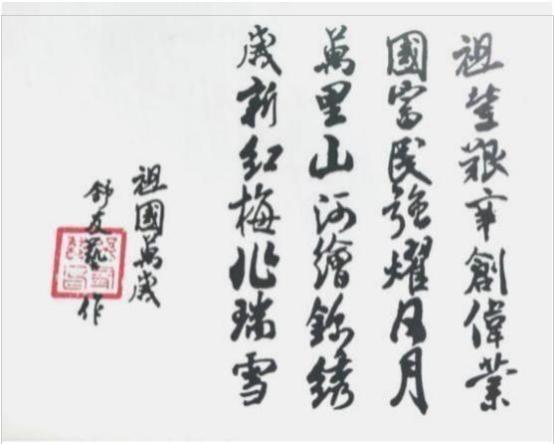 祖輩艱辛創偉業
國富民強耀日月
萬里山河繪錦綉
歲新红梅兆瑞雪
祖國萬歲
舒友藝作